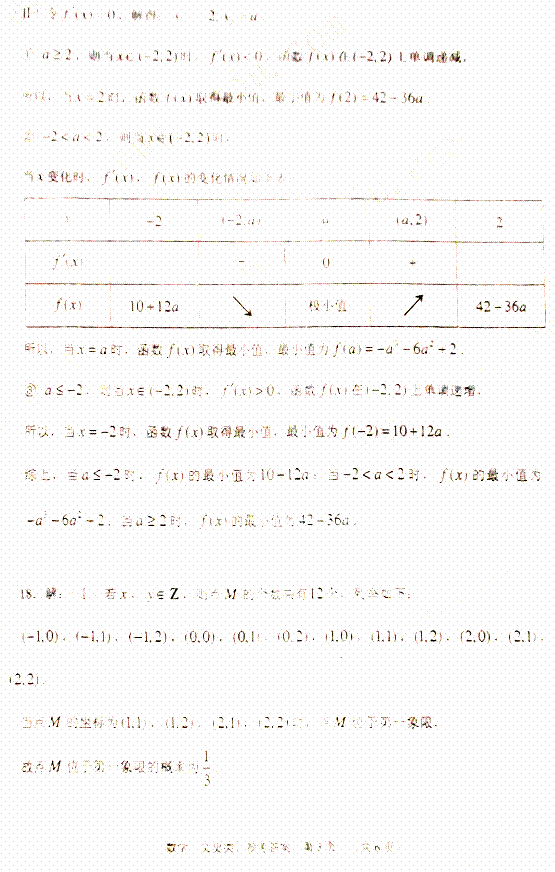 令f′(x)=0，解得 2, a
① a≥2，则当x∈(−2,2)时，f′(x)<0，函数f(x)在(−2,2)上单调递减，
所以，当x=2时，函数f(x)取得最小值，最小值为f(2)=42−36a
② −2<a<2，则当x∈(−2,2)时，
当x变化时，f′(x)，f(x)的变化情况如下表
x −2 (−2,a) a (a,2) 2
f′(x) − 0 +
f(x) 10+12a ↘ 极小值 ↗ 42−36a
所以，当x=a时，函数f(x)取得最小值，最小值为f(a)=−a³−6a²+2．
③ a≤−2，则当x∈(−2,2)时，f′(x)>0，函数f(x)在(−2,2)上单调递增，
所以，当x=−2时，函数f(x)取得最小值，最小值为f(−2)=10+12a．
综上，当a≤−2时，f(x)的最小值为10+12a；当−2<a<2时，f(x)的最小值为
−a³−6a²+2；当a≥2时，f(x)的最小值为42−36a．
18．解： 若x，y∈Z，则点M的个数共有12个，列举如下：
(−1,0)，(−1,1)，(−1,2)，(0,0)，(0,1)，(0,2)，(1,0)，(1,1)，(1,2)，(2,0)，(2,1)，
(2,2)．
当点M的坐标为(1,1)，(1,2)，(2,1)，(2,2)时，点M位于第一象限，
故点M位于第一象限的概率为1/3
数学 文史类 参考答案 第 页 共6页